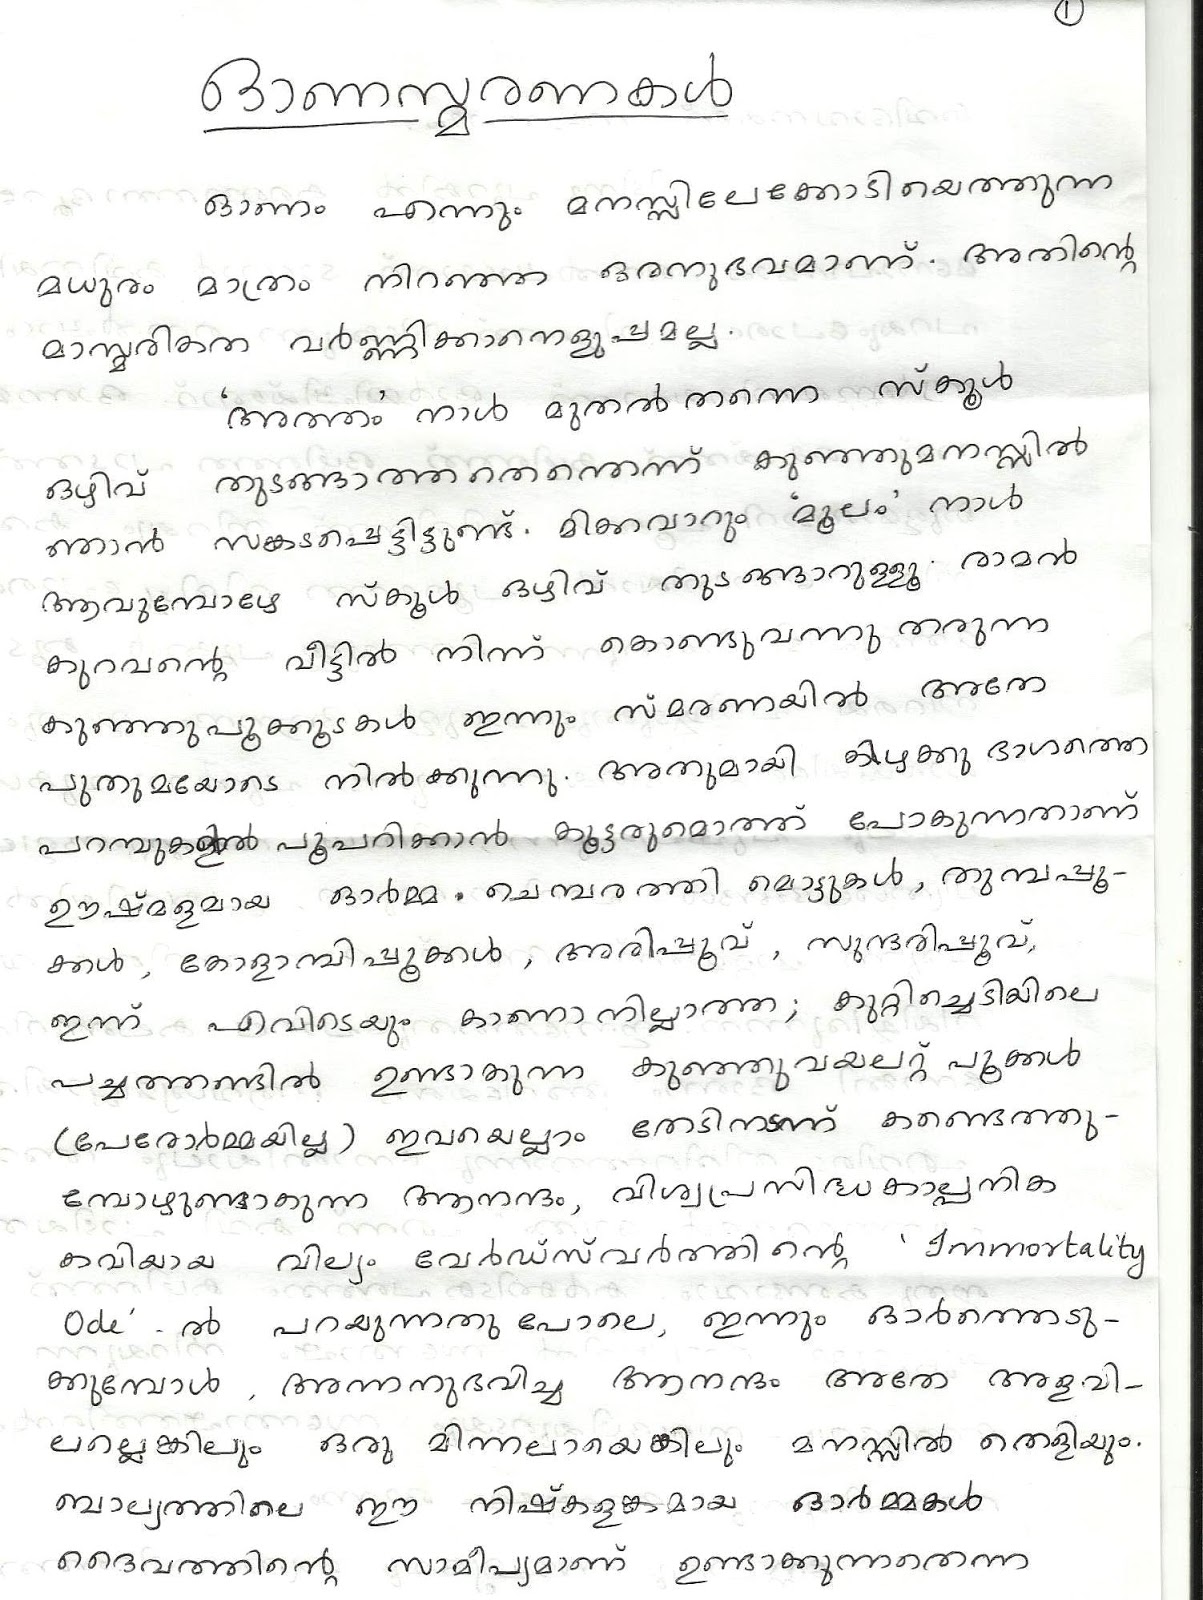 ①
ഓണസ്മരണകൾ
ഓണം എന്നും മനസ്സിലേക്കോടിയെത്തുന്ന
മധുരം മാത്രം നിറഞ്ഞ ഒരനുഭവമാണ്. അതിന്റെ
മാസ്മരികത വർണ്ണിക്കാനെളുപ്പമല്ല.
'അത്തം' നാൾ മുതൽ തന്നെ സ്കൂൾ
ഒഴിവ് തുടങ്ങാത്തതെന്തെന്ന് കുഞ്ഞുമനസ്സിൽ
ഞാൻ സങ്കടപ്പെട്ടിട്ടുണ്ട്. മിക്കവാറും 'മൂലം' നാൾ
ആവുമ്പോഴേ സ്കൂൾ ഒഴിവ് തുടങ്ങാറുള്ളൂ. രാമൻ
കുറവന്റെ വീട്ടിൽ നിന്ന് കൊണ്ടുവന്നു തരുന്ന
കുഞ്ഞുപൂക്കൂടകൾ ഇന്നും സ്മരണയിൽ അതേ
പുതുമയോടെ നിൽക്കുന്നു. അതുമായി കിഴക്കു ഭാഗത്തെ
പറമ്പുകളിൽ പൂപറിക്കാൻ കൂട്ടരുമൊത്ത് പോകുന്നതാണ്
ഊഷ്മളമായ ഓർമ്മ. ചെമ്പരത്തി മൊട്ടുകൾ, തുമ്പപ്പൂ-
ക്കൾ, കോളാമ്പിപ്പൂക്കൾ, അരിപ്പൂവ്, സുന്ദരിപ്പൂവ്,
ഇന്ന് എവിടെയും കാണാനില്ലാത്ത; കുറ്റിച്ചെടിയിലെ
പച്ചത്തണ്ടിൽ ഉണ്ടാകുന്ന കുഞ്ഞുവയലറ്റ് പൂക്കൾ
(പേരോർമ്മയില്ല) ഇവയെല്ലാം തേടിനടന്ന് കണ്ടെത്തു-
മ്പോഴുണ്ടാകുന്ന ആനന്ദം, വിശ്വപ്രസിദ്ധകാല്പനിക
കവിയായ വില്യം വേർഡ്സ്വർത്തിന്റെ 'Immortality
Ode'-ൽ പറയുന്നതു പോലെ, ഇന്നും ഓർത്തെടു-
ക്കുമ്പോൾ, അന്നനുഭവിച്ച ആനന്ദം അതേ അളവി-
ലല്ലെങ്കിലും ഒരു മിന്നലായെങ്കിലും മനസ്സിൽ തെളിയും.
ബാല്യത്തിലെ ഈ നിഷ്കളങ്കമായ ഓർമ്മകൾ
ദൈവത്തിന്റെ സാമീപ്യമാണ് ഉണ്ടാക്കുന്നതെന്ന